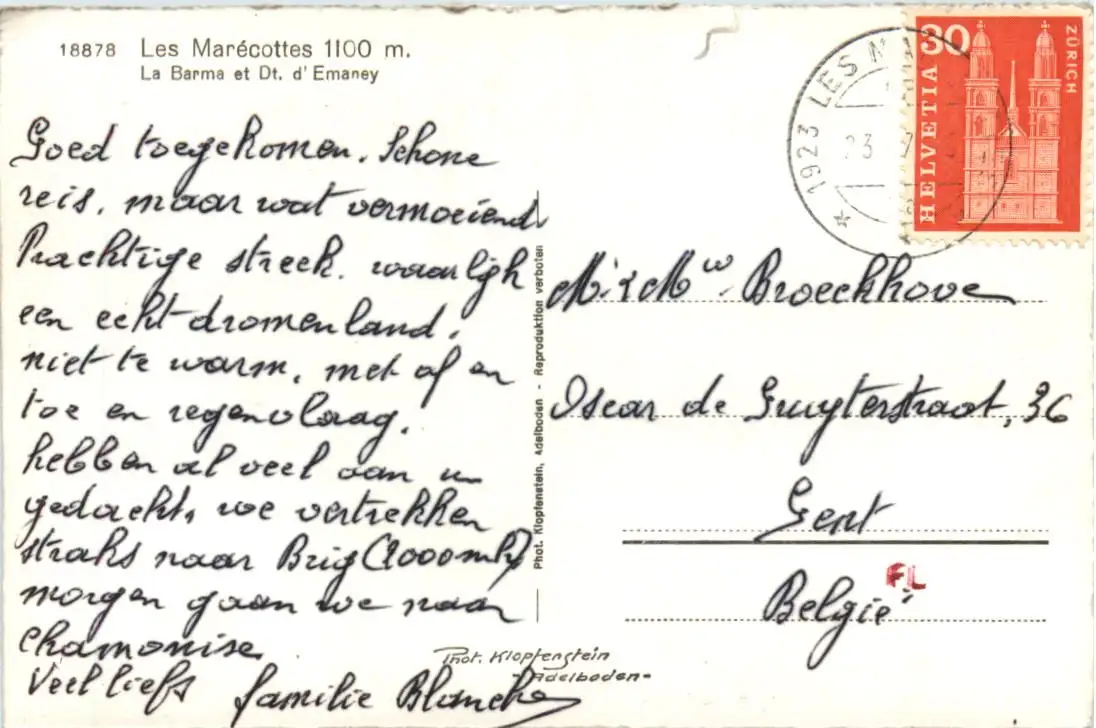 18878 Les Marécottes 1100 m.
La Barma et Dt. d'Emaney
Goed toegekomen. Schone
reis. maar wat vermoeiend
Prachtige streek. waarlijk
een echt dromenland.
niet te warm. met af en
toe en regenvlaag.
hebben al veel aan u
gedacht, we vertrekken
straks naar Brig
morgen gaan we naar
chamonise
Veel liefs familie
Phot. Klopfenstein, Adelboden - Reproduktion verboten
Phot. Klopfenstein
-Adelboden-
* 1923 LES
23
30
HELVETIA
ZÜRICH
M. & Mw. Broeckhove
Oscar de Gruyterstraat, 36
Gent
België
FL